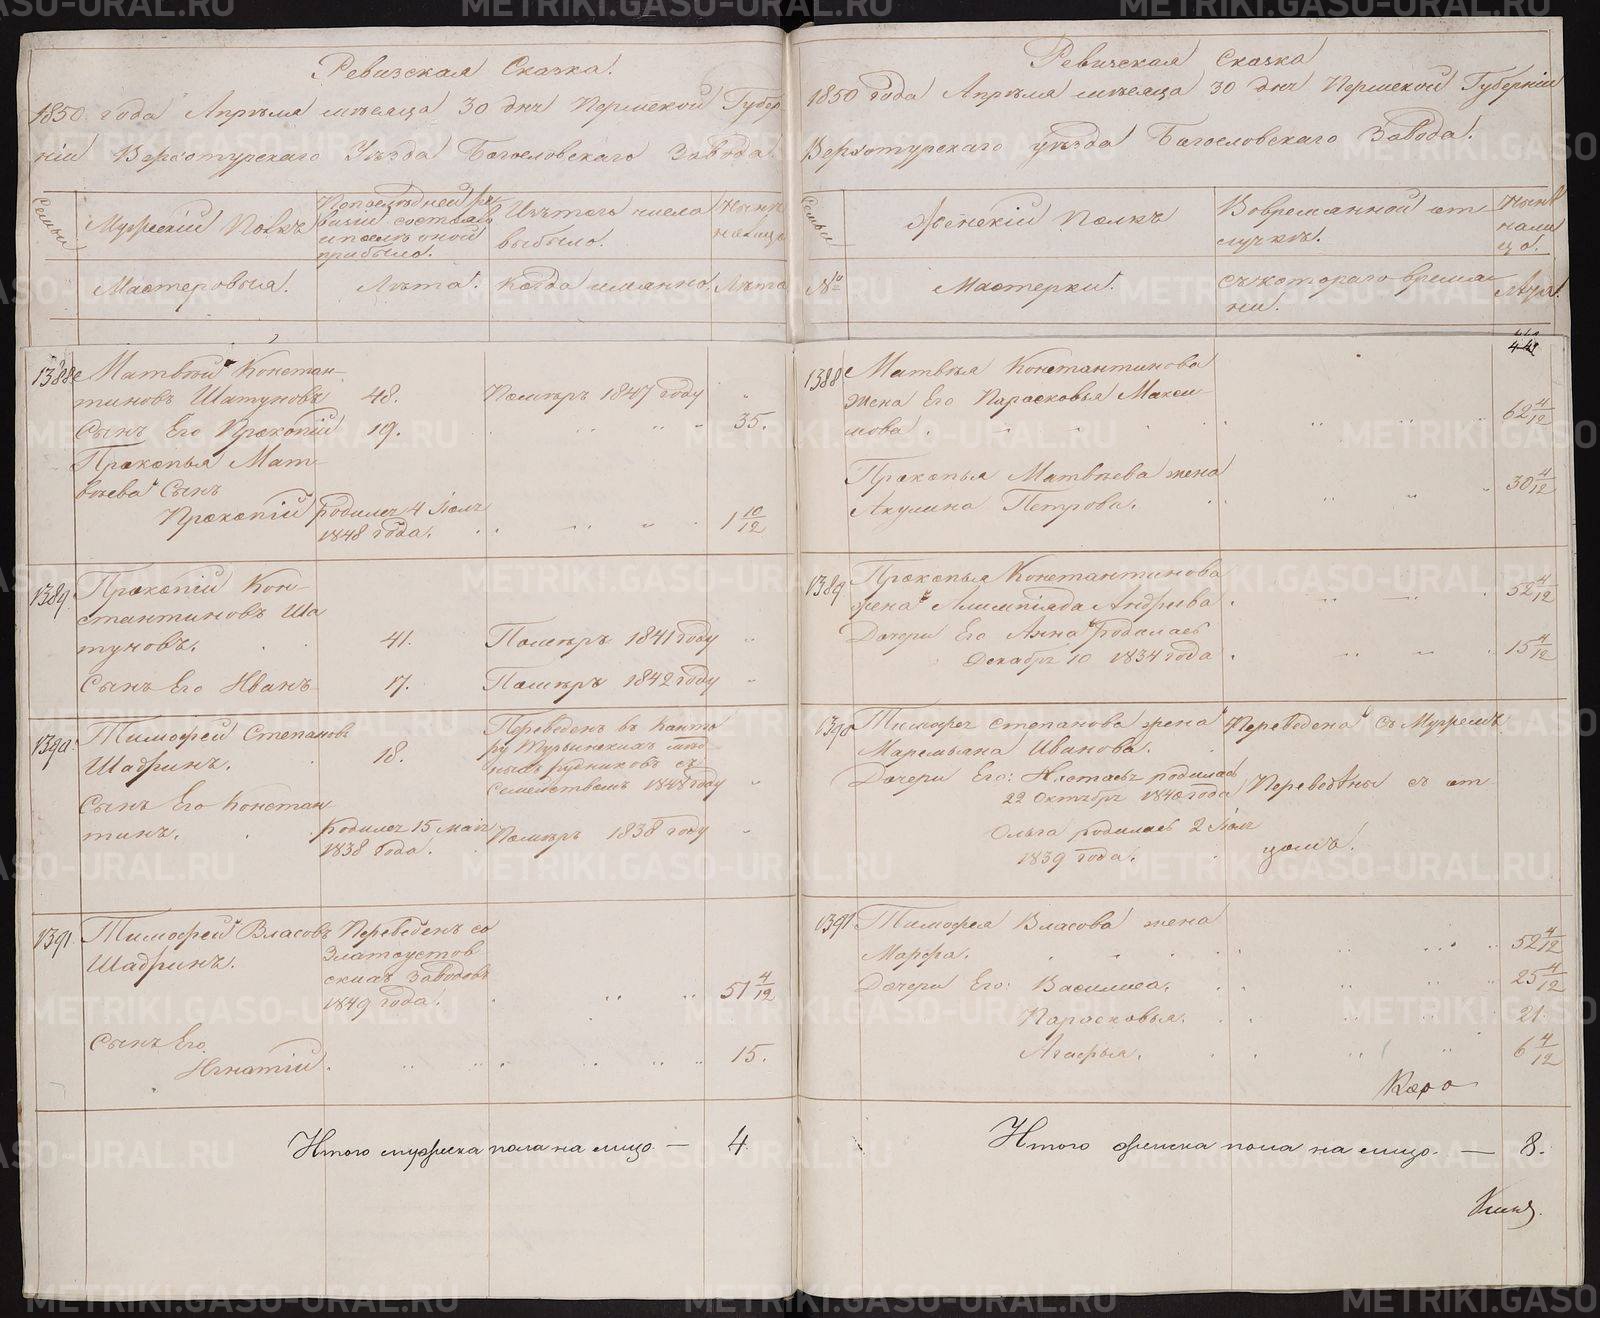 Ревизская Сказка.
1850 года Апреля месяца 30 дня Пермской Губер
нiи Верхотурскаго Уезда Богословскаго Завода.
Семьи
Мужескiй Полкъ
По последней ре
визiи состояло
и после оной
прибыло.
Изъ того числа
выбыло.
Ныне
на лицо
Мастеровыя.
Лета.
Когда имянно.
Лета
1388
Матвей Констан-
тиновъ Шатуновъ
48.
Померъ 1847 году
Сынъ Его Прокопiй
19.
35.
Прокопья Мат-
веева Сынъ
Прокопiй
родился 4 Iюля
1848 года.
1 10/12
1389
Прокопiй Кон-
стантиновъ Ша
туновъ.
41.
Померъ 1841 году
Сынъ Его Иванъ
17.
Померъ 1842 году
1390
Тимофей Степановъ
Шадринъ.
18.
Переведенъ въ Канто
ру Турьинскихъ мед
ныхъ рудниковъ съ
Семействомъ 1848 году
Сынъ Его Констан
тинъ.
родился 15 мая
1838 года.
Померъ 1838 году
1391
Тимофей Власовъ
Шадринъ.
Переведенъ со
Златоустов
скихъ Заводовъ
1849 года.
51 4/12
Сынъ Его
Игнатiй.
15.
Итого мужеска пола на лицо — 4.
Ревизская Сказка
1850 года Апреля месяца 30 дня Пермской Губернiи
Верхотурскаго уезда Богословскаго Завода.
Семьи
Женскiй Полкъ
Во временной от
лучке.
Ныне
на ли
цо.
№
Мастерки.
Съ котораго време
ни.
Лета.
1388
Матвея Константинова
жена Его Парасковья Макси
мова.
62 4/12
Прокопья Матвеева жена
Акулина Петрова.
30 4/12
1389
Прокопья Константинова
жена Алимпiяда Андрива
52 4/12
Дочери Его Анна родилась
Декабря 10 1834 года
15 4/12
1390
Тимофея Степанова жена
Маремьяна Иванова.
Переведена съ Мужемъ
Дочери Его: Настасья родилась
22 Октября 1840 года
Переведены съ от-
Ольга родилась 2 Iюля
1839 года.
цомъ.
1391
Тимофея Власова жена
Марфа.
52 4/12
Дочери Его: Василиса.
25 4/12
Парасковья.
21.
Агафья.
6 4/12
Итого женска пола на лицо. — 8.
METRIKI.GASO-URAL.RU